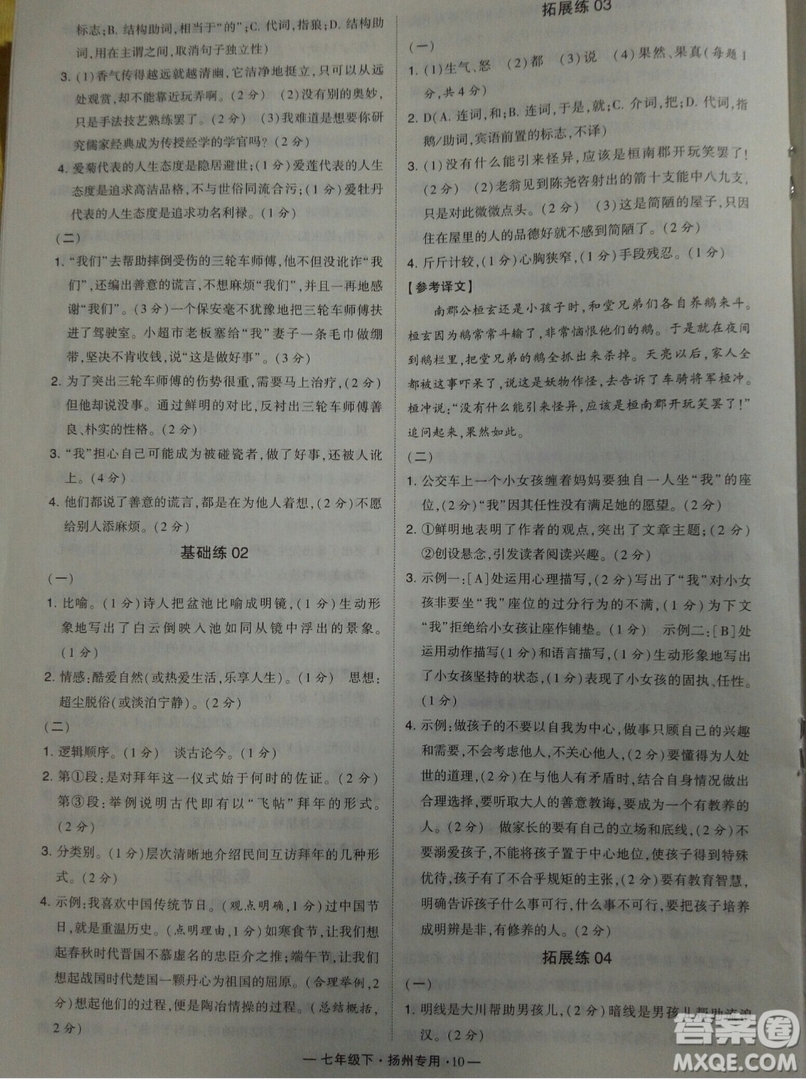 标志;B. 结构助词,相当于“的”;C. 代词,指狼;D. 结构助
词,用在主谓之间,取消句子独立性)
3. (1)香气传得越远就越清幽,它洁净地挺立,只可以从远
处观赏,却不能靠近玩弄啊。(2分)  (2)没有别的奥妙,
只是手法技艺熟练罢了。(2分)  (3)我难道是想要你研
究儒家经典成为传授经学的学官吗?(2分)
4. 爱菊代表的人生态度是隐居避世;爱莲代表的人生态
度是追求高洁品格,不与世俗同流合污;(2分)爱牡丹
代表的人生态度是追求功名利禄。(1分)
(二)
1. “我们”去帮助摔倒受伤的三轮车师傅,他不但没讹诈“我
们”,还编出善意的谎言,不想麻烦“我们”,并诚恳地感
谢“我们”。(3分)  一个保安毫不犹豫地把三轮车师傅扶
进了驾驶室。小超市老板塞给“我”妻子一条毛巾做绷
带,坚决不肯收钱,说“这是做好事”。(2分)
2. 为了突出三轮车师傅的伤势很重,需要马上治疗,(2分)
但他却没有治。通过鲜明的对比,反衬出三轮车师傅善
良、朴实的性格。(2分)
3. “我”担心自己可能成为被碰瓷者,做了好事,还被人讹
上。(4分)
4. 他们都说了善意的谎言,都能为他人着想,(2分)不愿
给别人添麻烦。(2分)
基础练 02
(一)
1. 比喻。(1分)诗人把盆池比喻成明镜,(1分)生动形
象地写出了白云倒映入池如同从镜中浮出的景象。
(1分)
2. 情感:酷爱自然(或热爱生活,乐享人生)。(1分)  思想:
超尘脱俗(或淡泊宁静)。(2分)
(二)
1. 逻辑顺序。(1分)  谈古论今。(1分)
2. 第①段:是对拜年这一仪式始于何时的佐证。(2分)
第③段:举例说明古代即有以“飞帖”拜年的形式。
(2分)
3. 分类别。(1分)层次清晰地介绍民间互访拜年的几种形
式。(2分)
4. 示例:我喜欢中国传统节日。(观点明确,1分)过中国节
日,就是重温历史。(点明理由,1分)如寒食节,让我们想
起春秋时代晋国不慕虚名的忠臣介之推;端午节,让我们
想起战国时代楚国一颗丹心为祖国的屈原。(合理举例,2分)
想起他们的过程,便是陶冶情操的过程。(总结概括,
2分)
拓展练 03
(一)
1. (1)生气、怒  (2)都  (3)说  (4)果然、果真(每题1
分,共4分)
2. D(A. 连词,和;B. 连词,于是;C. 介词,把;D. 代词,指
鹅/助词,宾语前置的标志,不译)
3. (1)没有什么能引来怪异,应该是桓南郡开玩笑罢了!
(2分)  (2)老翁见到陈尧咨射出的箭十支能中八九支,
只是对此微微点头。(2分)  (3)这是简陋的屋子,只因
住在屋里的人的品德好就不感到简陋了。(2分)
4. 斤斤计较,(1分)心胸狭窄,(1分)手段残忍。(1分)
【参考译文】
南郡公桓玄还是小孩子时,和堂兄弟们各自养鹅来斗。
桓玄因为鹅常常斗输了,非常恼恨他们的鹅。于是就在夜
间到鹅栏里,把堂兄弟的鹅全抓出来杀掉。天亮以后,家人全
都被这事吓呆了,说这是妖物作怪,去告诉了车骑将军桓冲。
桓冲说:“没有什么能引来怪异,应该是桓南郡开玩笑罢了!”
追问起来,果然如此。
(二)
1. 公交车上一个小女孩缠着妈妈要独自一人坐“我”的座
位,(2分)“我”因其任性没有满足她的愿望。(2分)
2. ①鲜明地表明了作者的观点,突出了文章主题;(2分)
②创设悬念,引发读者阅读兴趣。(2分)
3. 示例一:[A]处运用心理描写,(2分)写出了“我”对小女
孩非要坐“我”座位的过分行为的不满,(1分)为下文
“我”拒绝给小女孩让座作铺垫。(1分)  示例二:[B]处
运用动作描写和语言描写,(2分)生动形象地写出
了小女孩坚持的状态,(1分)表现了小女孩的固执、任性。
(1分)
4. 示例:做孩子的不要以自我为中心,做事只顾自己的兴趣
和开心,不会考虑他人,不关心他人,要懂得基本的为人处
世的道理,(2分)在与他人有矛盾时,结合自身情况做出
合理选择,要听取大人的善意教诲,要成为一个有教养的
人。(1分)  做家长的要有自己的立场和底线,(2分)
不要溺爱孩子,该拒绝的时候就拒绝,碰到孩子出于特殊
优待,不合乎规矩的主张,(2分)要有教育智慧,
明确告诉孩子什么事可行,什么事不可行,把孩子培养
成明辨是非、有修养的人。(1分)
拓展练 04
(一)
1. 明线是大川帮助男孩儿,(2分)暗线是男孩儿帮助流浪
汉。(2分)
七年级下·扬州专用·10
答案圈
MXQE.COM